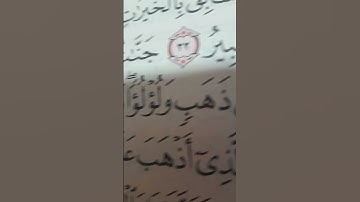 بِٱلْخَيْرَٰتِ
ـبِيرُ ٣٢ جَنَّـٰ
ذَهَبٍ وَلُؤْلُؤًا
ـذِىٓ أَذْهَبَ عَـ